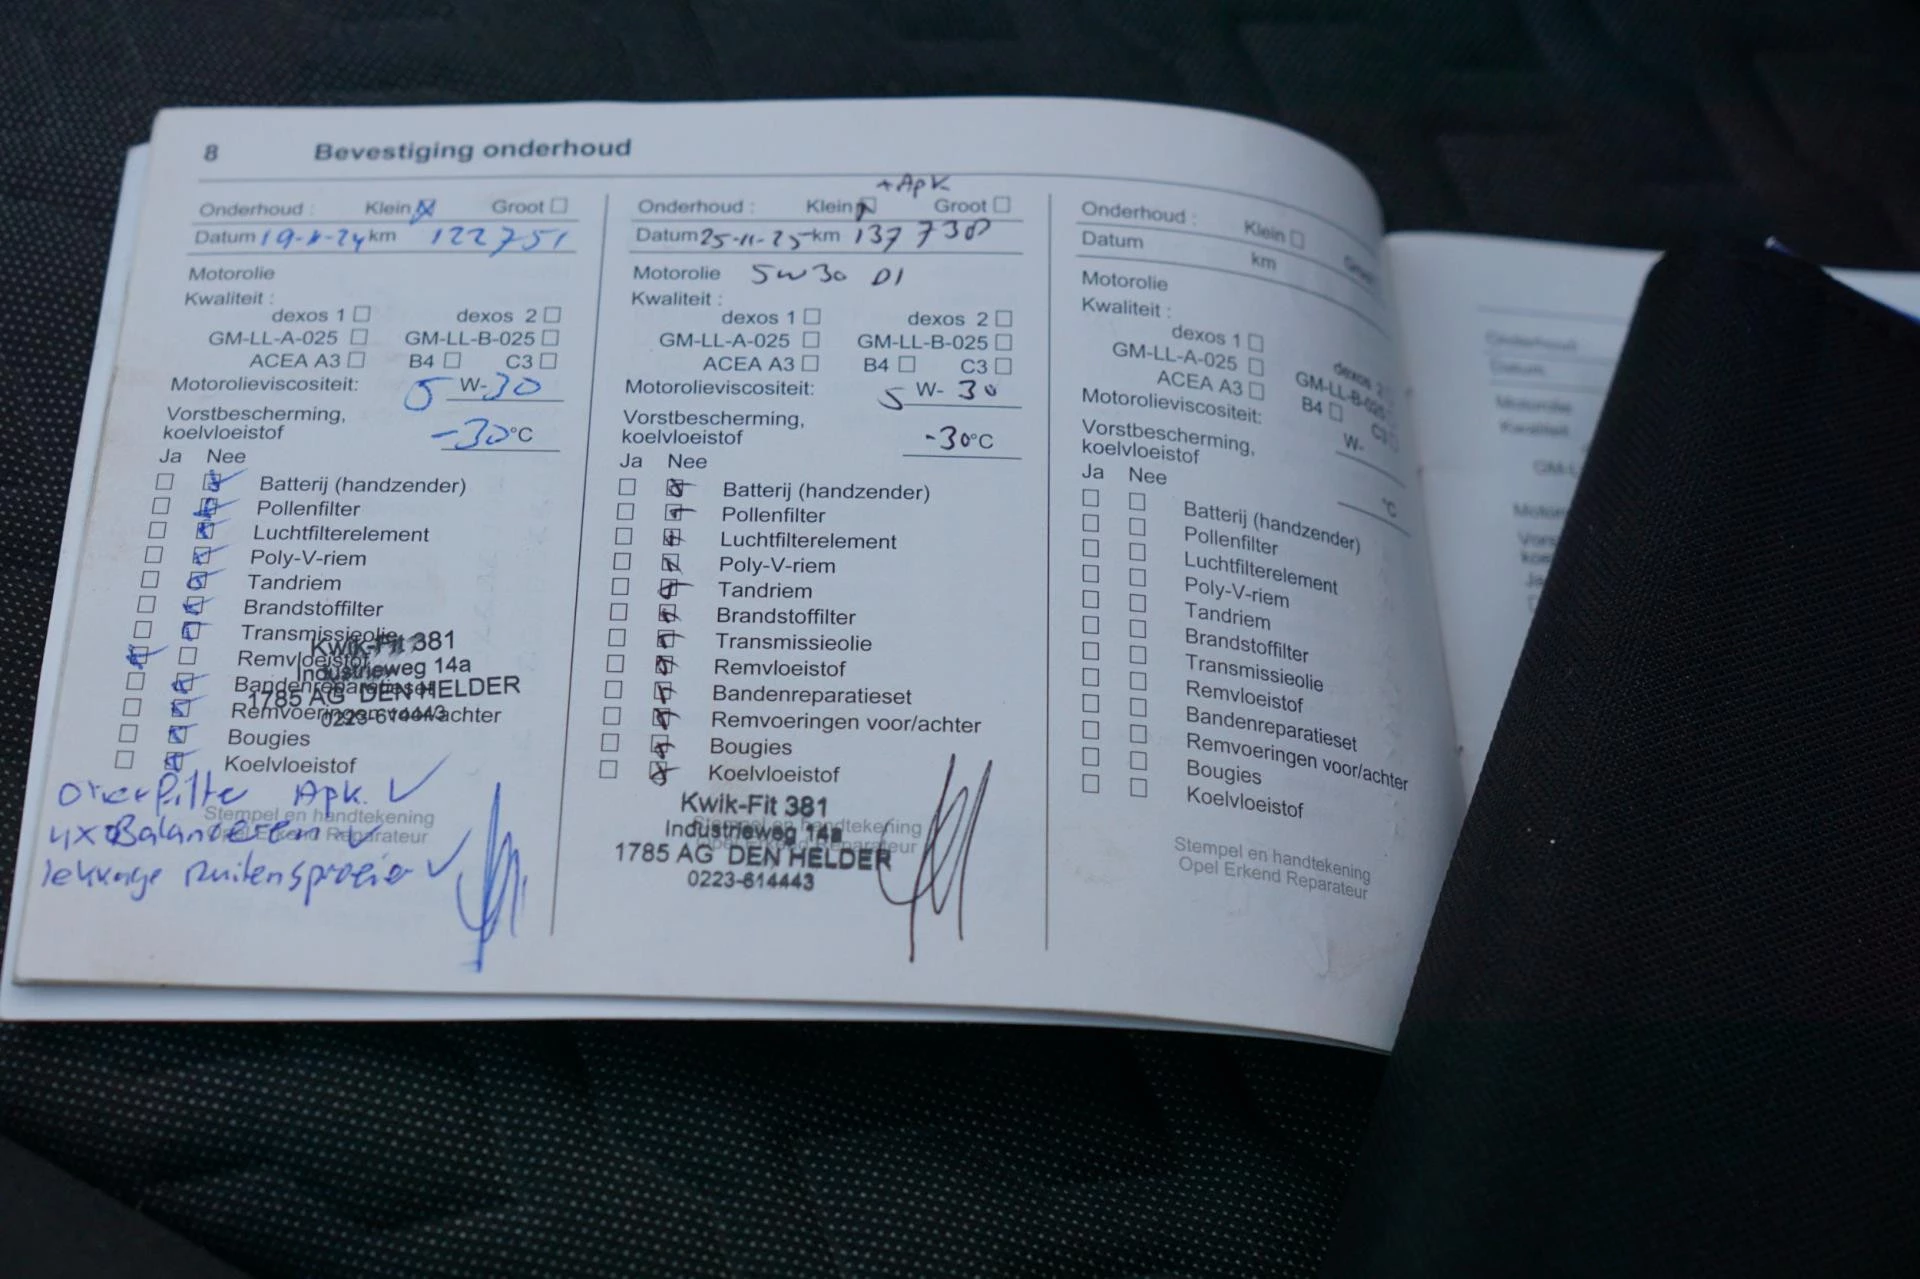 8 Bevestiging onderhoud
+ Apk
Onderhoud : Klein Groot
Datum 19-11-24 km 122751
Motorolie
Kwaliteit :
dexos 1 dexos 2
GM-LL-A-025 GM-LL-B-025
ACEA A3 B4 C3
Motorolieviscositeit: 5 W-30
Vorstbescherming,
koelvloeistof -30°C
Ja Nee
Batterij (handzender)
Pollenfilter
Luchtfilterelement
Poly-V-riem
Tandriem
Brandstoffilter
Transmissieolie
Remvloeistof
Bandenreparatieset
Remvoeringen voor/achter
Bougies
Koelvloeistof
Kwik-Fit 381
Industrieweg 14a
1785 AG DEN HELDER
0223-614443
Apk.
4x Balanceren
lekkage Ruitensproeier
Stempel en handtekening
Opel Erkend Reparateur
Onderhoud : Klein Groot
Datum 25-11-25 km 137 738
Motorolie 5w30 D1
Kwaliteit :
dexos 1 dexos 2
GM-LL-A-025 GM-LL-B-025
ACEA A3 B4 C3
Motorolieviscositeit: 5 W-30
Vorstbescherming,
koelvloeistof -30°C
Ja Nee
Batterij (handzender)
Pollenfilter
Luchtfilterelement
Poly-V-riem
Tandriem
Brandstoffilter
Transmissieolie
Remvloeistof
Bandenreparatieset
Remvoeringen voor/achter
Bougies
Koelvloeistof
Kwik-Fit 381
Industrieweg 14a
1785 AG DEN HELDER
0223-614443
Stempel en handtekening
Opel Erkend Reparateur
Onderhoud : Klein Groot
Datum km
Motorolie
Kwaliteit :
dexos 1 dexos 2
GM-LL-A-025 GM-LL-B-025
ACEA A3 B4 C3
Motorolieviscositeit: W-
Vorstbescherming,
koelvloeistof °C
Ja Nee
Batterij (handzender)
Pollenfilter
Luchtfilterelement
Poly-V-riem
Tandriem
Brandstoffilter
Transmissieolie
Remvloeistof
Bandenreparatieset
Remvoeringen voor/achter
Bougies
Koelvloeistof
Stempel en handtekening
Opel Erkend Reparateur
Onderhoud
Datum
Motorolie
Kwaliteit